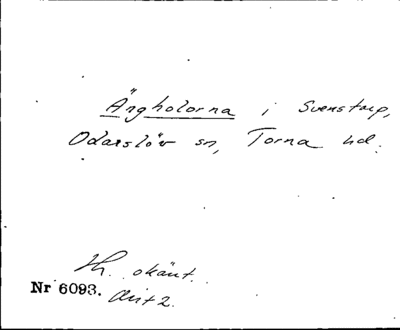 Ängholorna i Svenstorp,
Odarslöv sn, Torna hd.
Th. okänt.
Nr 6093.